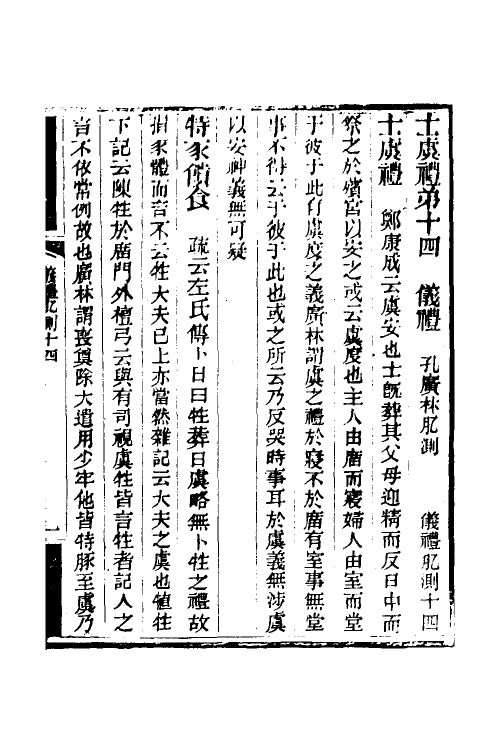 士虞禮弟十四　儀禮　孔廣林肊測　儀禮肊測十四
士虞禮　鄭康成云虞安也士旣葬其父母迎精而反日中而
祭之於殯宮以安之或云虞度也主人由廟而寢婦人由室而堂
于彼于此有虞度之義廣林謂虞之禮於寢不於廟有室事無堂
事不得云于彼于此也或之所云乃反哭時事耳於虞義無涉虞
以安神義無可疑
特豕饋食　疏云左氏傳卜日曰牲葬日虞略無卜牲之禮故
指豕體而言不云牲大夫已上亦當然雜記云大夫之虞也犆牲
下記云陳牲於廟門外檀弓云與有司視虞牲皆言牲者記人之
言不依常例故也廣林謂喪奠除大遣用少牢他皆特豚至虞乃
儀禮肊測十四